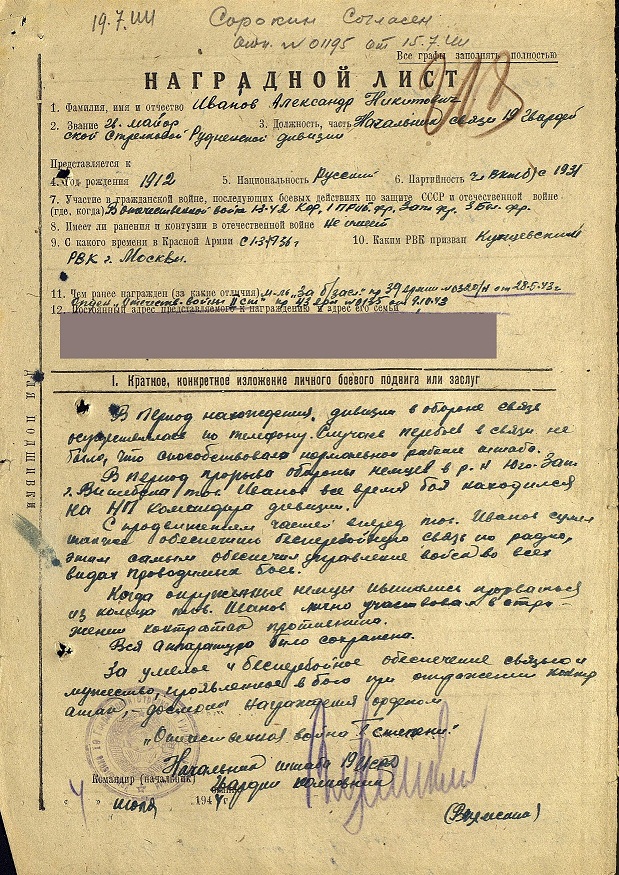 19.7.44
Сорокин Согласен
№ 01195 от 15.7.44
Все графы заполнять полностью
НАГРАДНОЙ ЛИСТ
1. Фамилия, имя и отчество Иванов Александр Никитович
2. Звание Гв. майор 3. Должность, часть Начальник связи 19 Гвардей
ской Стрелковой Рудненской дивизии
Представляется к
4. Год рождения 1912 5. Национальность Русский 6. Партийность чл ВКП(б) с 1931
7. Участие в гражданской войне, последующих боевых действиях по защите СССР и отечественной войне
(где, когда) В отечественной войне 1 ПРиб. фр, Зап фр. 3 Бел. фр.
8. Имеет ли ранения и контузии в отечественной войне Не имеет
9. С какого времени в Красной Армии с 1934г 10. Каким РВК призван Кунцевский
РВК г. Москвы.
11. Чем ранее награжден (за какие отличия) м-ль „За б/засл." пр 39 армии №0320/н от 28-5-43г
Орден „Отечеств. войны II ст" пр 43 арм №0135 от 9.10.43
12. Постоянный адрес представляемого к награждению и адрес его семьи
I. Краткое, конкретное изложение личного боевого подвига или заслуг
В период нахождения дивизии в обороне связь
осуществлялась по телефону. Случаев перебоев в связи не
было, что способствовало нормальной работе штаба.
В период прорыва обороны немцев в р-н Юго-Зап
г. Витебска тов. Иванов все время боя находился
на НП командира дивизии.
С продвижением частей вперед тов. Иванов сумел
также обеспечить бесперебойную связь по радио,
этим самым обеспечил управление войск во всех
видах проводимых боев.
Когда окруженные немцы пытались прорваться
из кольца тов. Иванов лично участвовал в отра-
жении контратак противника.
Вся аппаратура была сохранена.
За умелое и бесперебойное обеспечение связью и
мужество, проявленное в бою при отражении контр
атак, - достоин награждения орденом
„Отечественная война II степени".
Начальник штаба 19
Командир (начальник)
Гвардии полковник
4 июля 1944
ДЛЯ ПОДШИВКИ